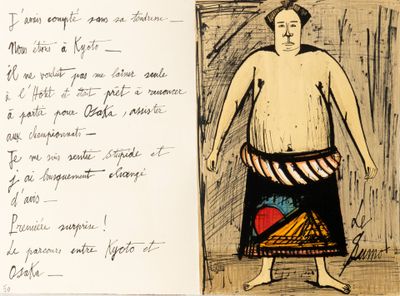 J'avais compté sans sa tendresse —
Nous étions à Kyoto —
il ne voulut pas me laisser seule
à l'Hôtel et était prêt à renoncer
à partir pour Osaka, assister
aux championnats —
Je me suis sentie stupide et
j'ai brusquement changé
d'avis —
Première surprise !
Le parcours entre Kyoto et
Osaka —
50
Le
Sumo